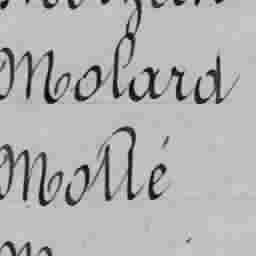 Molard
Mollé